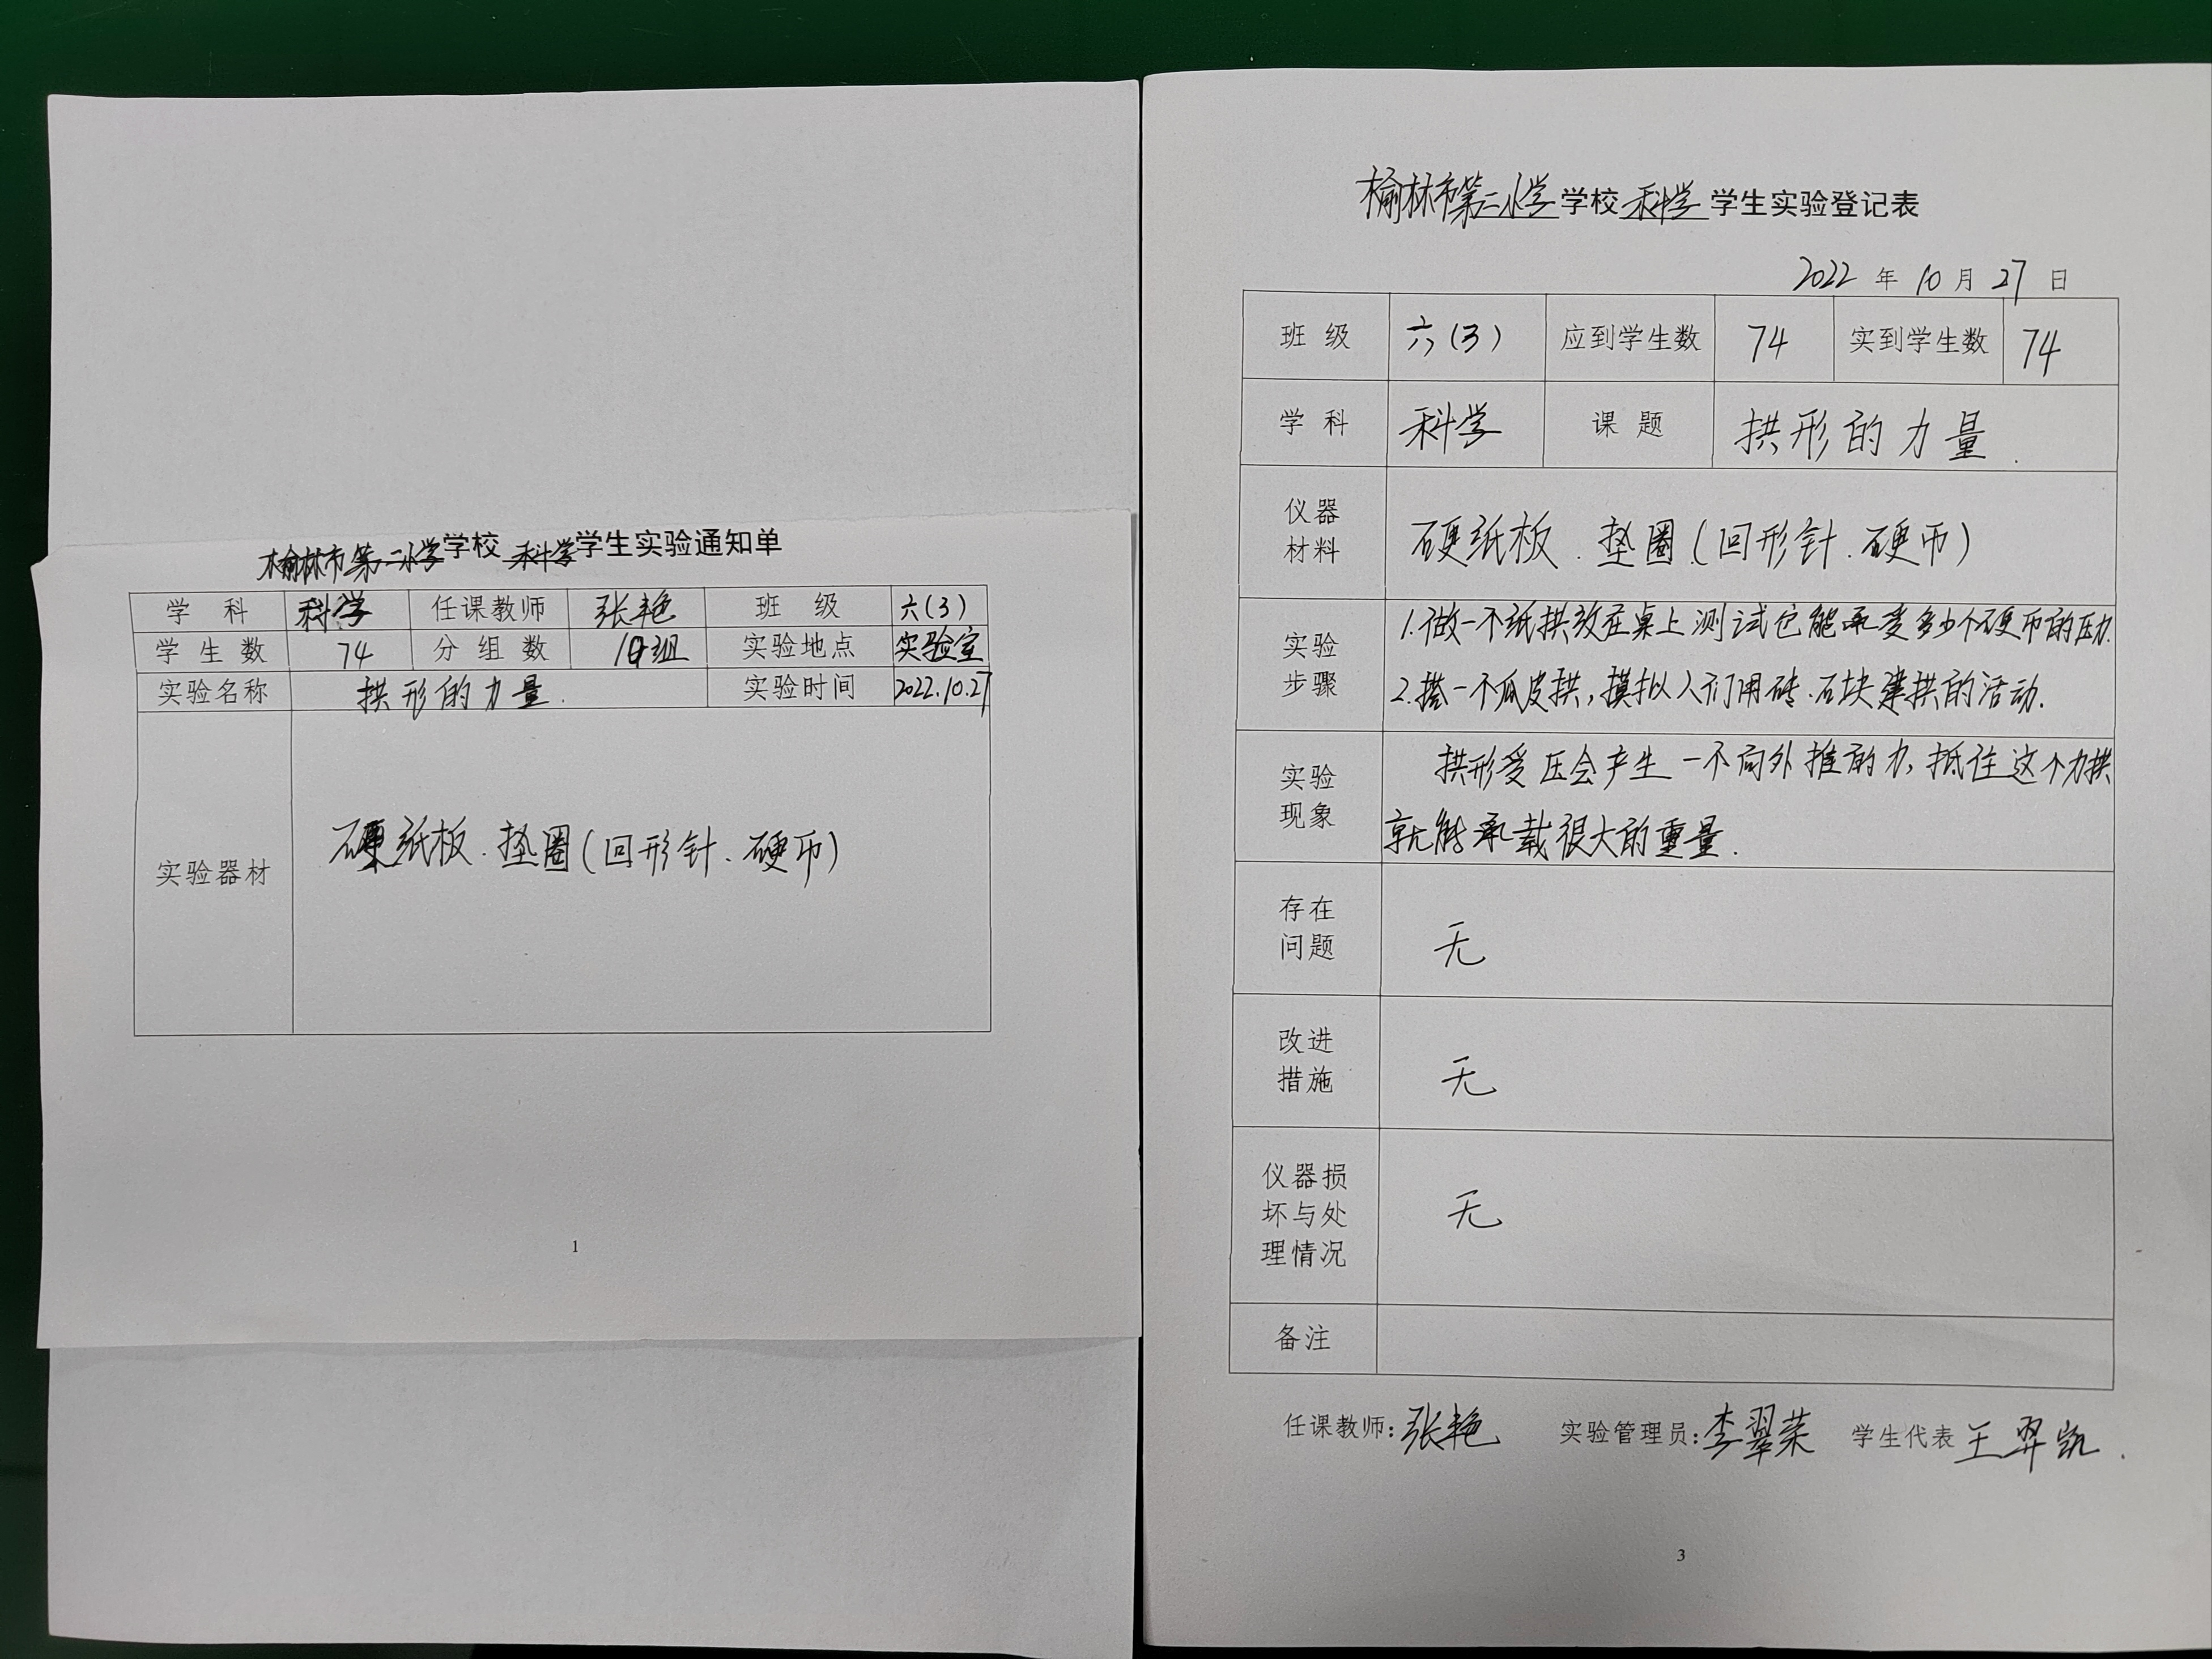 榆林市第二小学学校 科学学生实验通知单
学科 科学 任课教师 张艳 班级 六(3)
学生数 74 分组数 10组 实验地点 实验室
实验名称 拱形的力量. 实验时间 2022.10.27
实验器材 硬纸板.垫圈(回形针、硬币)
1
榆林市第二小学学校 科学 学生实验登记表
2022 年 10 月 27 日
班级 六(3) 应到学生数 74 实到学生数 74
学科 科学 课题 拱形的力量.
仪器
材料
硬纸板.垫圈(回形针.硬币)
实验
步骤
1.做一个纸拱放在桌上测试它能承受多少个硬币的压力.
2.搭一个瓜皮拱,摸拟人们用砖.石块建拱的活动.
实验
现象
拱形受压会产生一个向外推的力,抵住这个力拱
就能承载很大的重量.
存在
问题
无
改进
措施
无
仪器损
坏与处
理情况
无
备注
任课教师:张艳 实验管理员:李翠荣 学生代表 王羿凯.
3